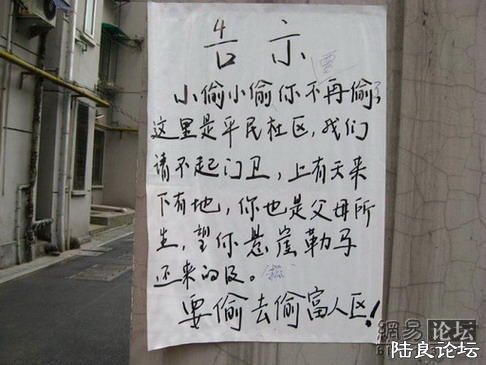 告示
要
小偷小偷你不再偷，
这里是平民社区，我们
请不起门卫，上有天来
下有地，你也是父母所
生，望你悬崖勒马
还来的及。
要偷去偷富人区！
網易论坛
陆良论坛